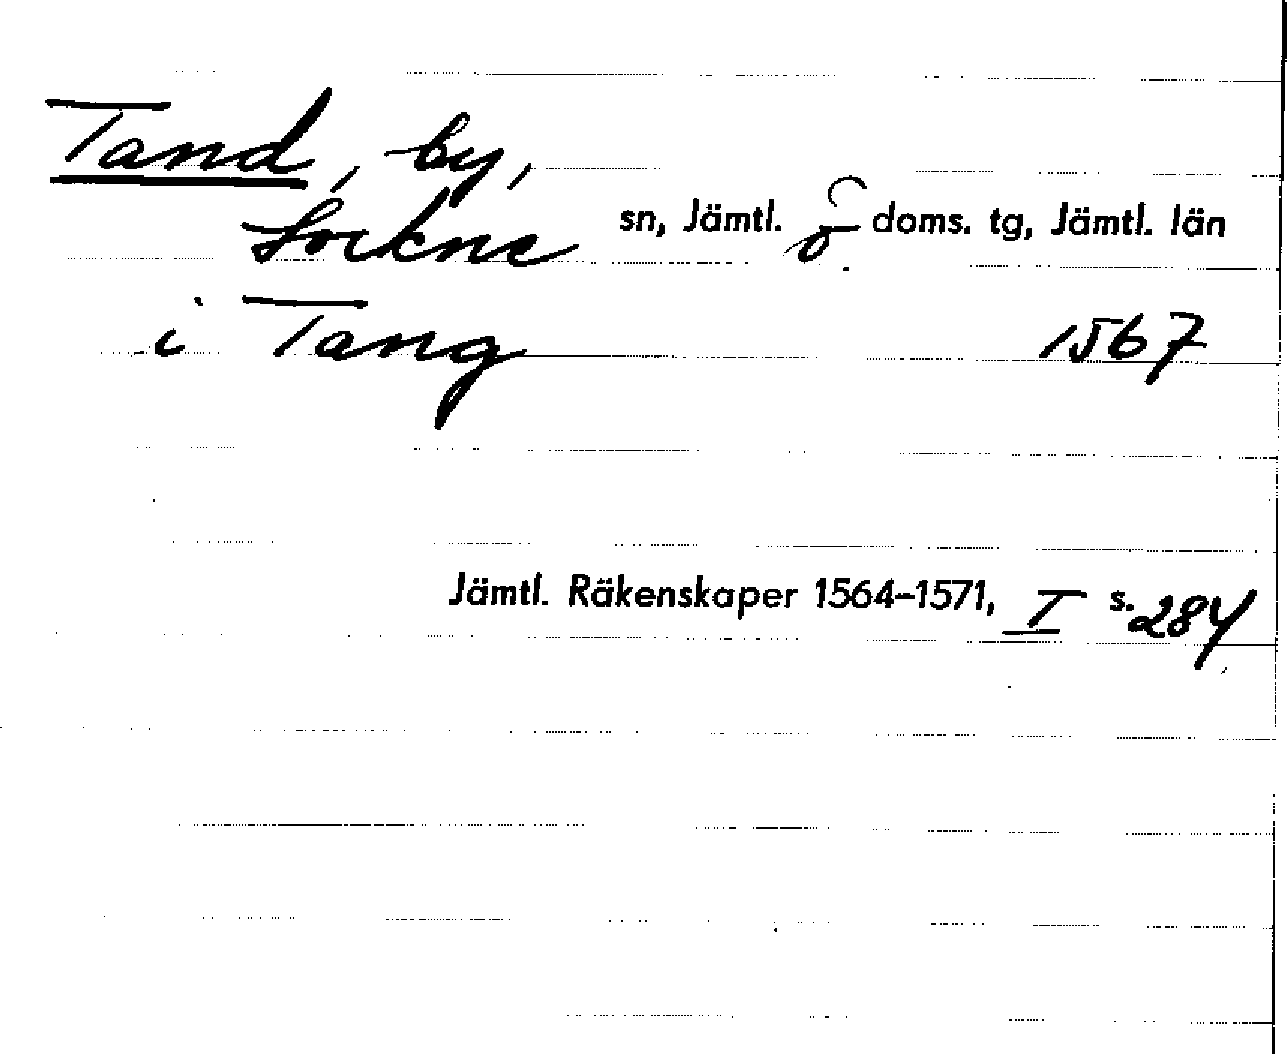 Tand, by,
Lockne sn, Jämtl. ö. doms. tg, Jämtl. län
i Tang 1567
Jämtl. Räkenskaper 1564–1571, I s. 284